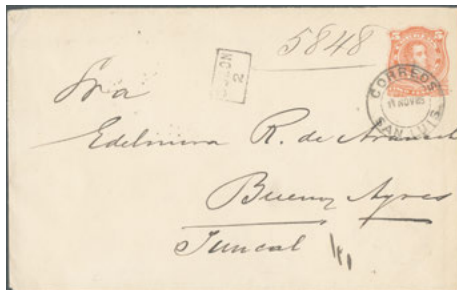 5848
5 5
BUZON
2
CORREOS
11 NOV 89
SAN LUIS
Sra
Edelmira R. de
Buenos Ayres
Juncal